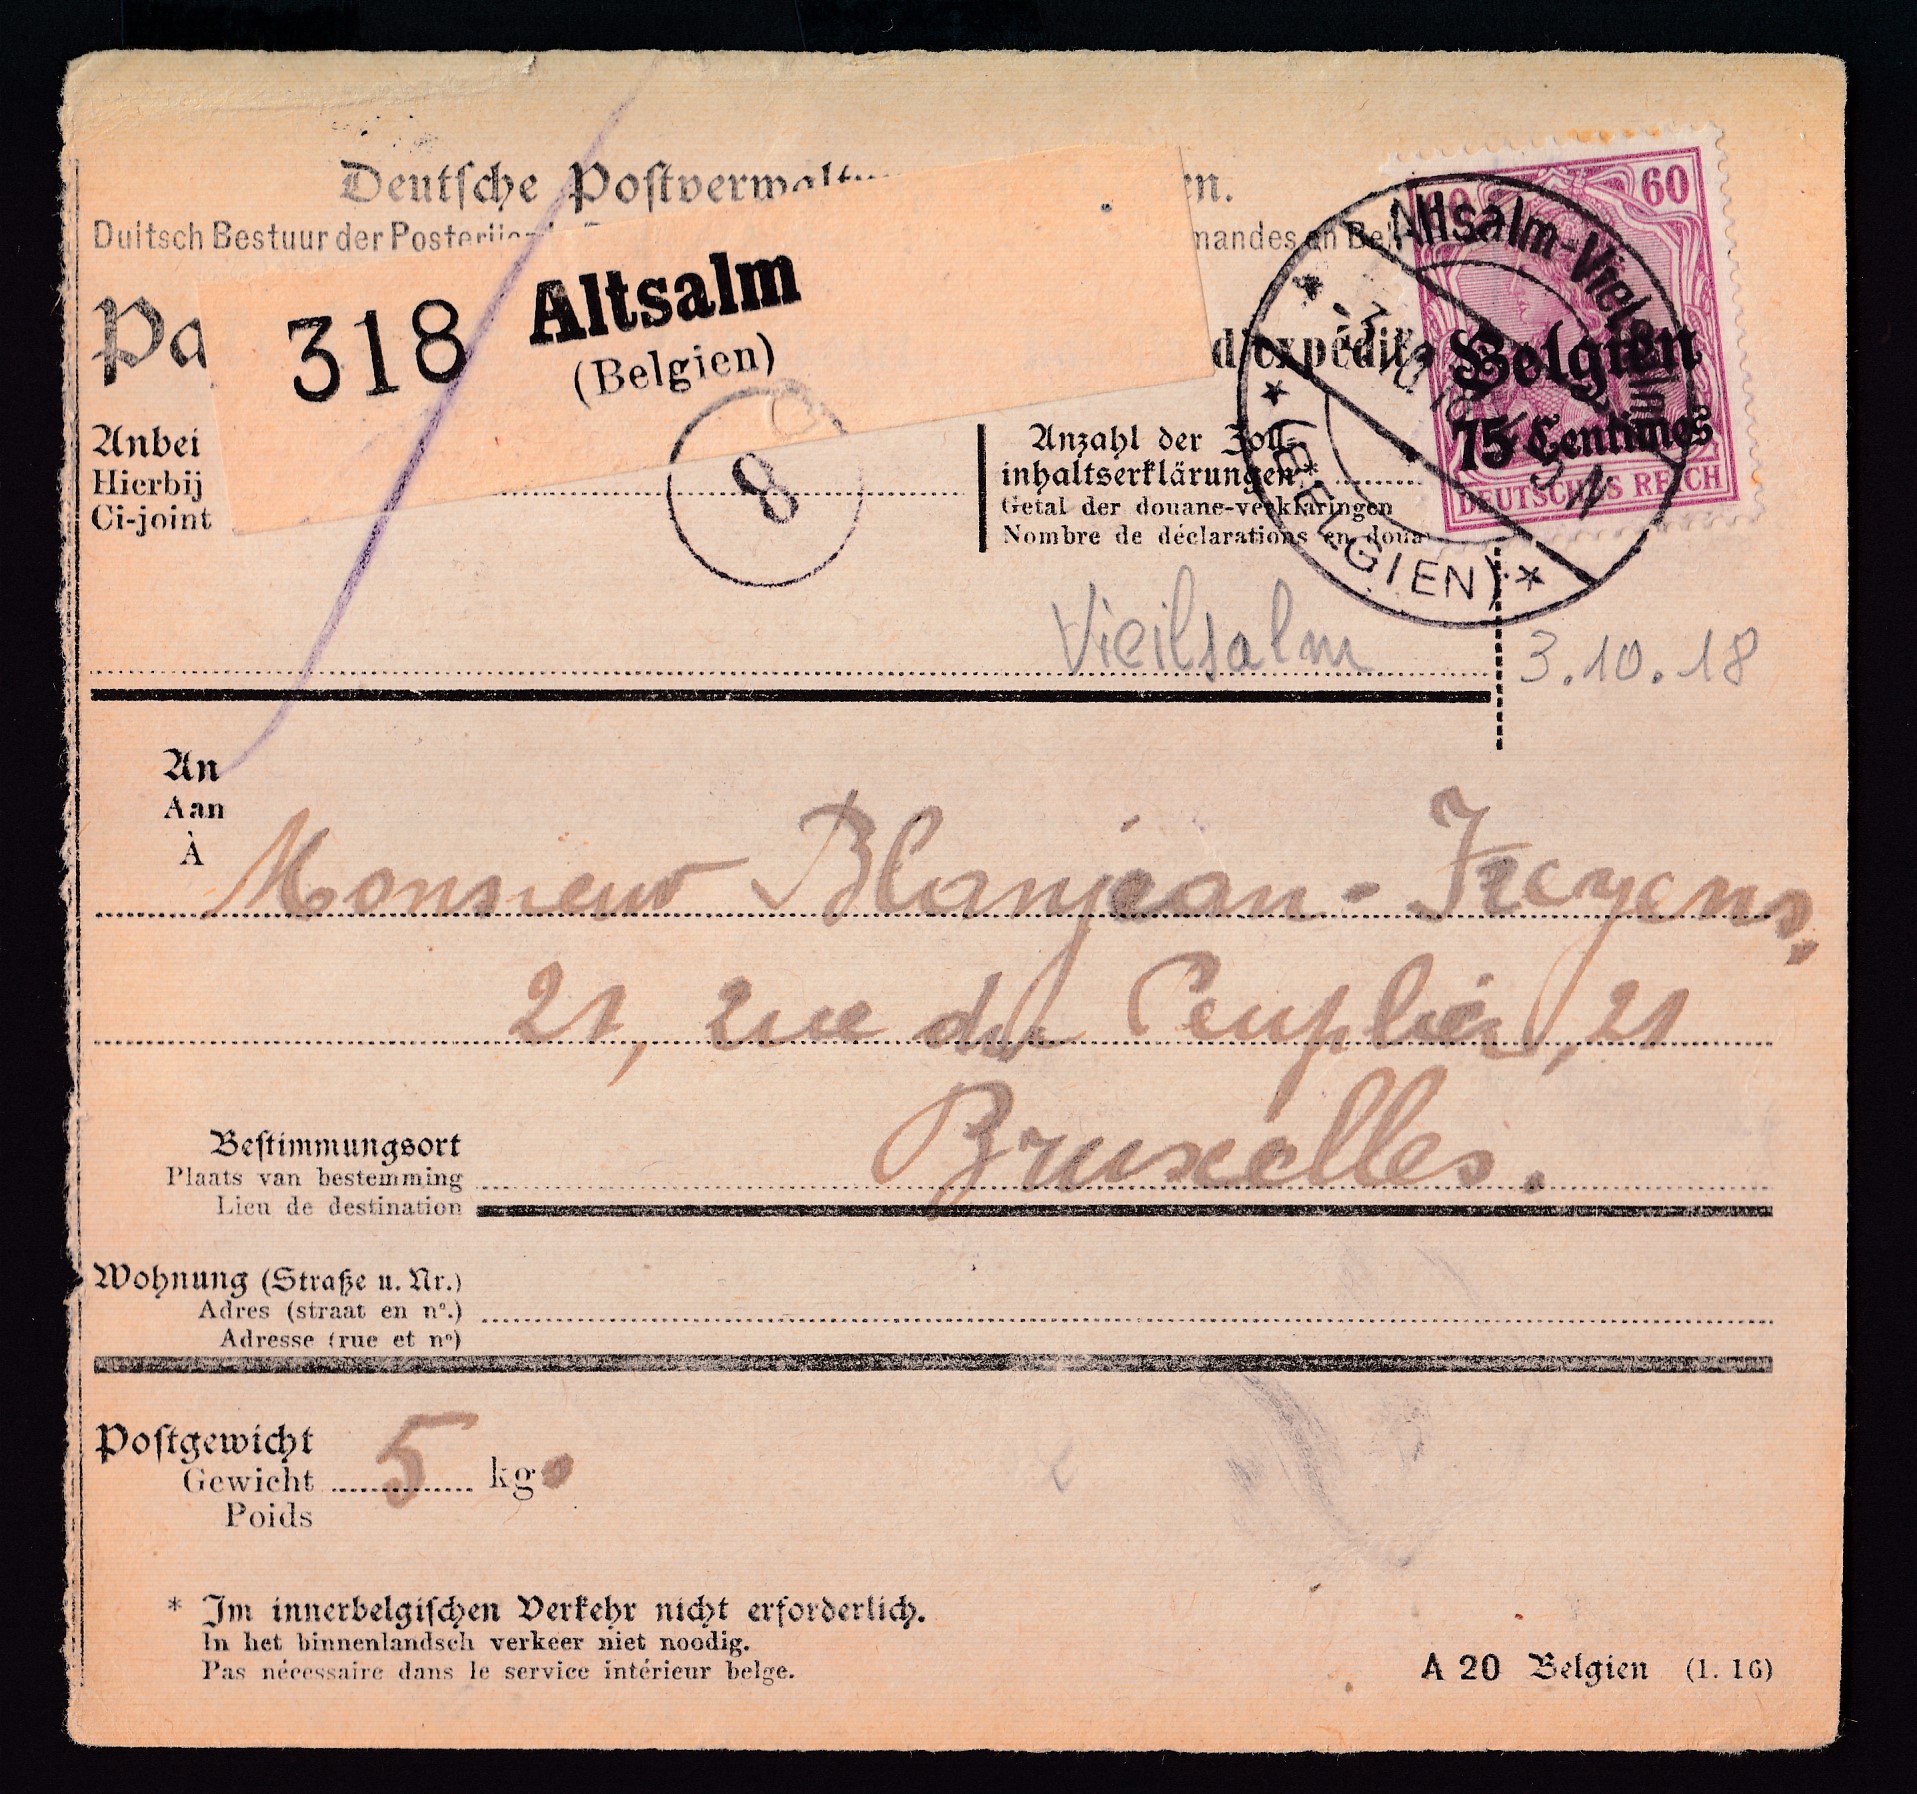 Deutsche Postverwaltu en.
Duitsch Bestuur der Posterijen mandes en Bel
Pa d'expédit
318 Altsalm
(Belgien)
Anbei
Hierbij
Ci-joint
8
Anzahl der Zoll-
inhaltserklärungen*
Getal der douane-verklaringen
Nombre de déclarations en doua
60 60
Belgien
75 Centimes
DEUTSCHES REICH
Altsalm-Vielsalm
3.10.18 5-6 N
(BELGIEN)
Vieilsalm 3.10.18
An
Aan
À
Monsieur Blanjean-Freyens,
21, rue du Peuplier, 21
Bruxelles.
Bestimmungsort
Plaats van bestemming
Lieu de destination
Wohnung (Straße u. Nr.)
Adres (straat en nº.)
Adresse (rue et nº)
Postgewicht
Gewicht 5 kg
Poids
* Im innerbelgischen Verkehr nicht erforderlich.
In het binnenlandsch verkeer niet noodig.
Pas nécessaire dans le service intérieur belge.
A 20 Belgien (1. 16)